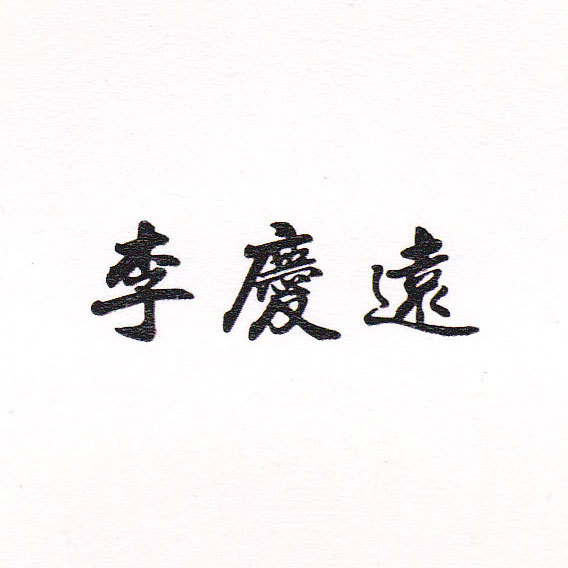 李慶遠